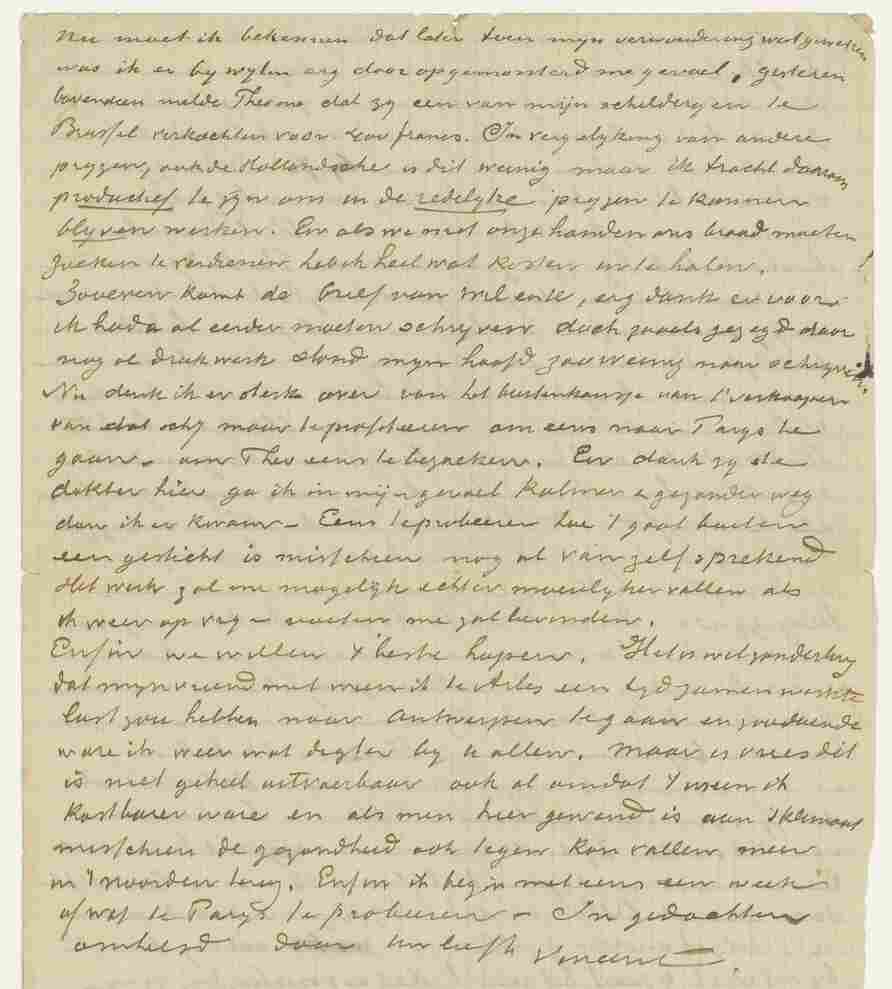 Nu moet ik bekennen dat later toen mijn verwondering wat geweken
was ik er bywylen erg door opgemonterd me gevoel. gisteren
bovendien melde Theo me dat zy een van mijn schilderyen te
Brussel verkochten voor 400 francs. In vergelyking van andere
pryzen, ook de Hollandsche is dit weinig maar ik tracht daarom
productief te zyn om in de redelyke pryzen te kunnen
blyven werken. En als we met onze handen ons brood moeten
zoeken te verdienen heb ik heel wat kosten in te halen.
Zooeven komt de brief van Wil ook, erg dank er voor
ik had al eerder moeten schryven doch zooals gezegd door
nog al druk werk stond myn hoofd zoo weinig naar schryven.
Nu denk ik er sterk over van het buitenkansje van 't verkoopen
van dat schy maar te profiteeren om eens naar Parys te
gaan – om Theo eens te bezoeken. En dank zy de
dokter hier ga ik in mijn gevoel kalmer & gezonder weg
dan ik er kwam – Eens te probeeren hoe 't gaat buiten
een gesticht is misschien nog al van zelf sprekend
Het werk zal me mogelijk echter moeielyker vallen als
ik weer op vrye voeten me zal bevinden.
Enfin we willen 't beste hopen. Het is wel zonderling
dat myn vriend met wien ik te Arles een tyd zamen werkte
lust zou hebben naar Antwerpen te gaan en zoodoende
ware ik weer wat digter by u allen. Maar ik vrees dit
is niet geheel uitvoerbaar ook al omdat 't meen ik
kostbarer ware en als men hier gewend is aan 't klimaat
misschien de gezondheid ook tegen kon vallen meer
in 't noorden terug. Enfin ik begin met eens een week
of wat te Parys te probeeren – In gedachten
omhelsd door uw liefh Vincent